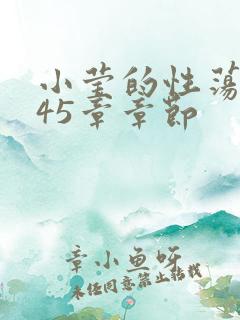 小莹的性荡
45章章节
章小鱼呀
未经同意禁止转载